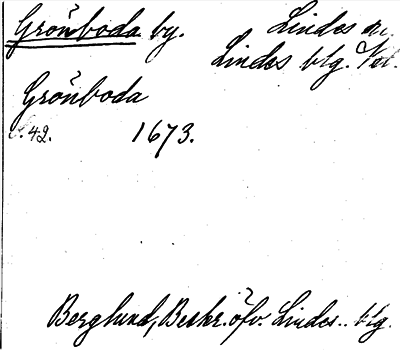 Grönboda by. Lindes sn.
Lindes blg. Vstl.
Grönboda
s. 42. 1673.
Berglund, Beskr. öfv. Lindes.. blg.